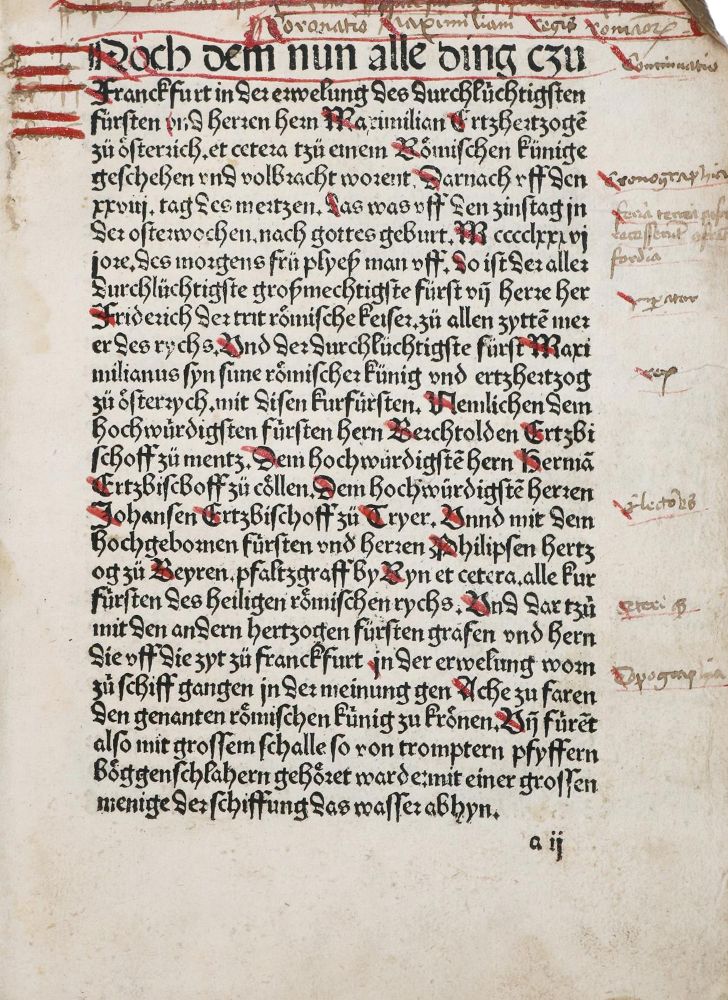 Coronatio Maximiliani Regis romanorum
Nöch dem nun alle ding czu
Continuatio
Franckfurt in der erwelung des durchlüchtigsten
fürsten vnd herren hern Maximilian Ertzhertzogē
zü österrich. et cetera tzü einem Römischen künige
geschehen vnd volbracht worent. Darnach vff den
Cronographia
xxviij. tag des mertzen. das was vff den zinstag jn
feria tercia
der osterwochen. nach gottes geburt. M cccclxxxvj
jore. des morgens frü plyeß man vff. do ist der aller
fordia
durchlüchtigste großmechtigste fürst vn̄ herre her
Imperator
Friderich der trit römische keiser. zü allen zyttē mer
er des rychs. Vnd der durchlüchtigste fürst Maxi
milianus syn sune römischer künig vnd ertzhertzog
rex
zü österrych. mit disen kurfürsten. Nemlichen dem
hochwürdigsten fürsten hern Berchtolden Ertzbi
schoff zü mentz. Dem hochwürdigstē hern Hermā
Ertzbischoff zü cöllen. Dem hochwürdigstē herren
Electores
Johansen Ertzbischoff zü Tryer. Vnnd mit dem
hochgebornen fürsten vnd herren Philipsen hertz
og zü Beyren. pfaltzgraff by Ryn et cetera. alle kur
fürsten des heiligen römischen rychs. Vnd dar tzü
ceteri
mit den andern hertzogen fürsten grafen vnd hern
die vff die zyt zü franckfurt jn der erwelung worn
Topographia
zü schiff gangen jn der meinung gen Ache zu faren
den genanten römischen künig zu krönen. Vn̄ fürēt
also mit grossem schalle so von tromptern pfyffern
böggenschlahern gehöret ward ermit einer grossen
menige der schiffung das wasser abhyn.
a ij